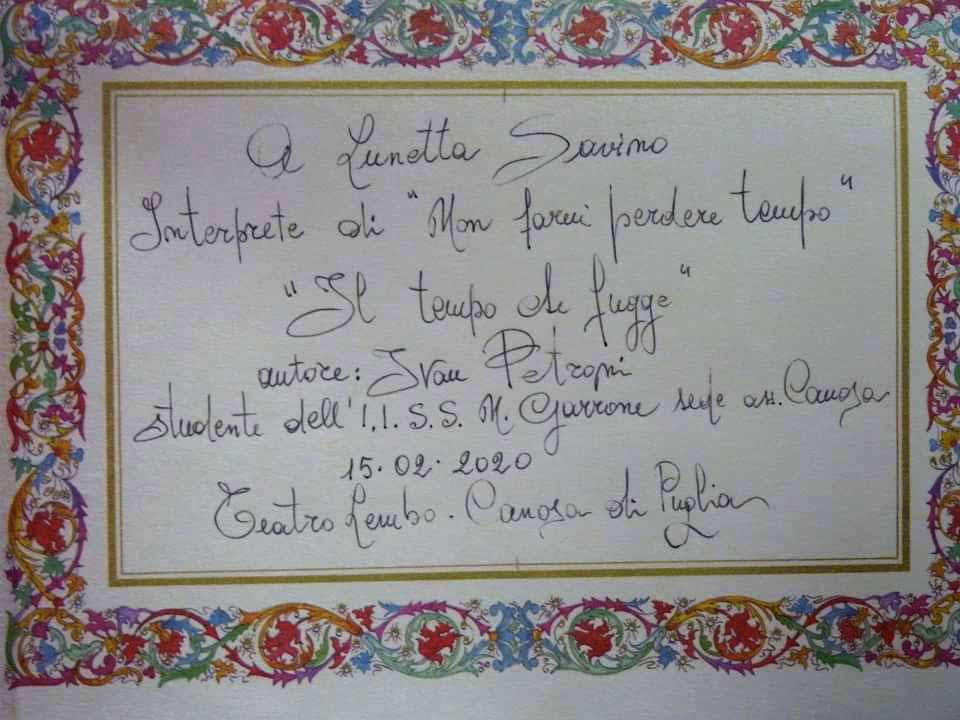 A Lunetta Savino
Interprete di "Non farmi perdere tempo"
"Il tempo che fugge"
autore: Ivan Petroni
studente dell' I.I.S.S. N. Garrone sede ass. Canosa
15.02.2020
Teatro Lembo. Canosa di Puglia